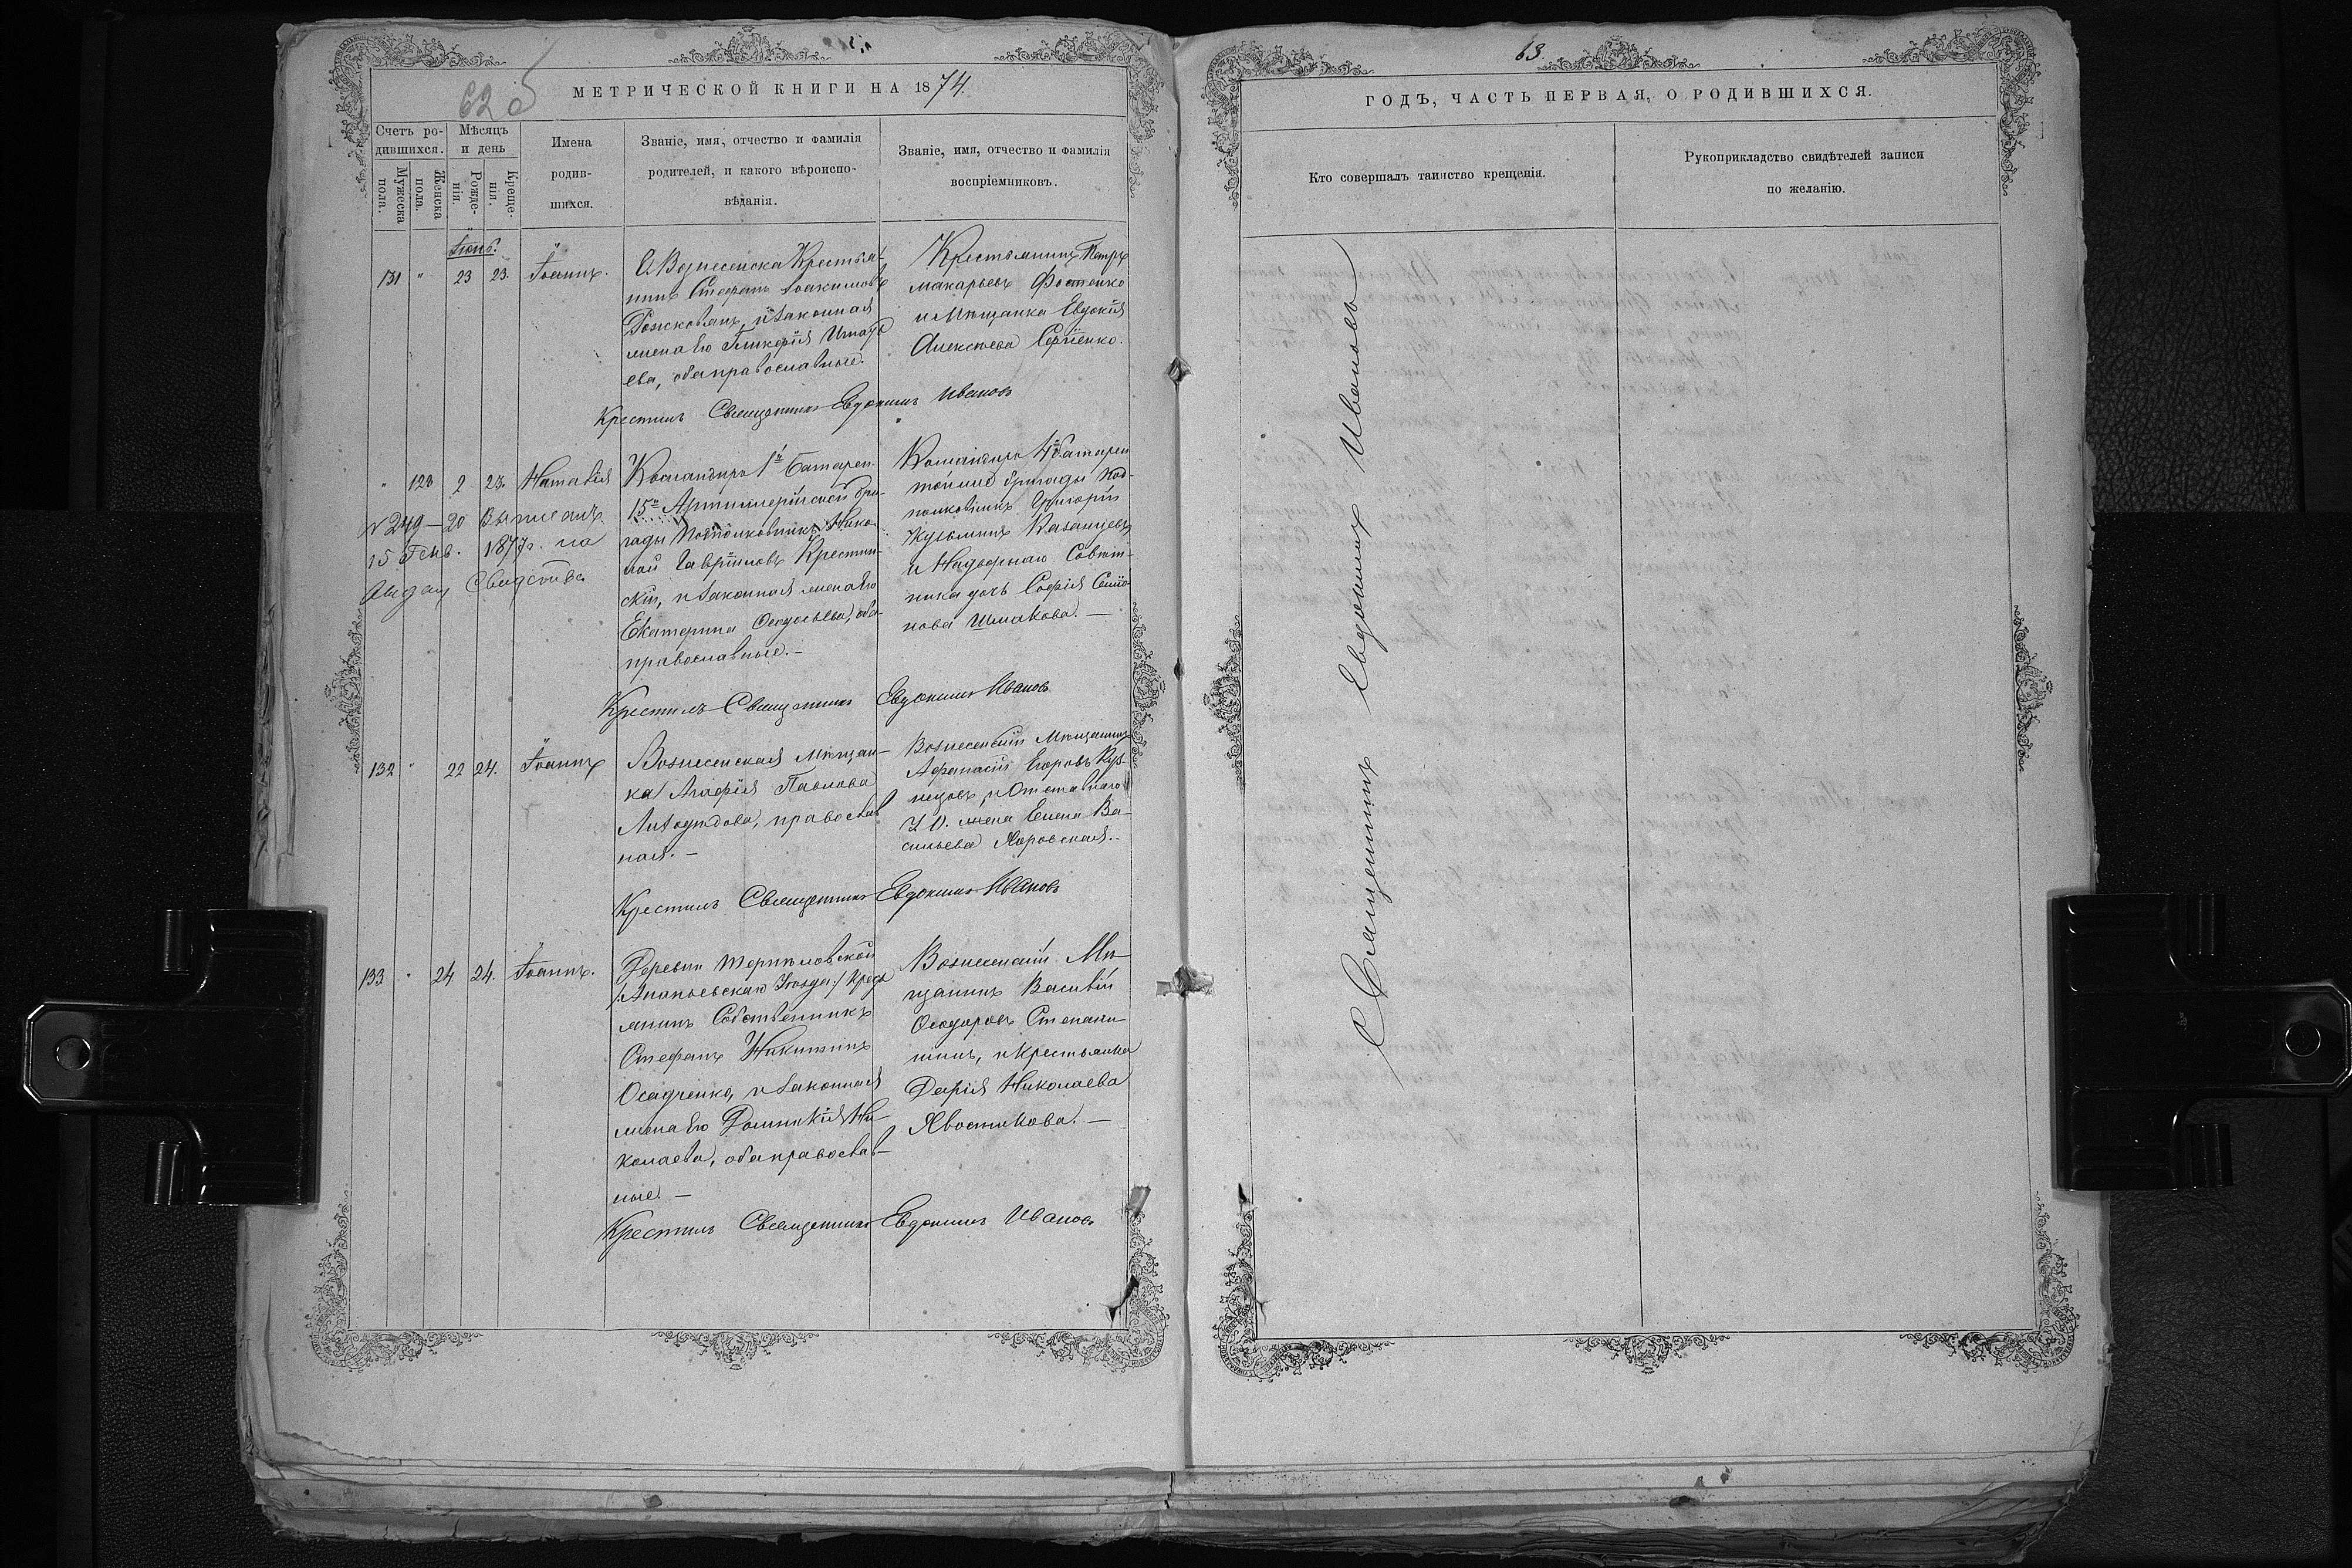 62 об
МЕТРИЧЕСКОЙ КНИГИ НА 1874.
Счетъ родившихся.
Мужеска пола.
Женска пола.
Мѣсяцъ и день
Рожденія.
Крещенія.
Имена родившихся.
Званіе, имя, отчество и фамилія
родителей, и какого вѣроиспо-
вѣданія.
Званіе, имя, отчество и фамилія
воспріемниковъ.
Іюнь.
131 " 23 23. Іоаннъ.
Вознесенска Крестья-
нинъ Стефанъ Іоакимовъ
и законная
жена его Гликерія Игнать
ева, оба православные.
Крестьянинъ Петръ
Макарьевъ Фотенко
и Мѣщанка Евдокія
Алексѣева Сергіенко.
Крестилъ Священникъ Евдокимъ Ивановъ
" 123 2 23. Наталія
№ 249 — 20 Выписанъ
15 Генв. 1877 г. на
выдачу Свидѣтва
Командиръ 1й Батареи
15й Артиллерійской бри-
гады Подполковникъ Нико-
лай Гавріиловъ Крестин-
скій, и законная жена его
Екатерина Ѳеодосьева, оба
православные. —
Командиръ 4й батареи
той же бригады Под-
полковникъ Григорій
Кузьминъ Казанцевъ
и Надворнаго Совѣт-
ника дочь Софія Семіо-
нова Шмакова. —
Крестилъ Священникъ Евдокимъ Ивановъ
132 " 22 24. Іоаннъ
Вознесенская Мѣщан-
ка Агафія Павлова
православ
ная. —
Вознесенскій Мѣщанинъ
Афанасій Егоровъ Куз-
нецовъ, и Отставнаго
У. О. жена Елена Ва-
сильева Хоровская. —
Крестилъ Священникъ Евдокимъ Ивановъ
133 " 24 24. Іоаннъ.
Деревни
/:Ананьевскаго Уѣзда:/ Кресть
янинъ Собственникъ
Стефанъ Никитинъ
Осадченко, и законная
жена его Домникія Ни-
колаева, оба православ-
ные. —
Вознесенскій Мѣ-
щанинъ Василій
Ѳеодоровъ Степани-
шинъ, и Крестьянка
Дарія Николаева
Хвостикова. —
Крестилъ Священникъ Евдокимъ Ивановъ
63.
ГОДЪ, ЧАСТЬ ПЕРВАЯ, О РОДИВШИХСЯ.
Кто совершалъ таинство крещенія.
Рукоприкладство свидѣтелей записи
по желанію.
Священникъ Евдокимъ Ивановъ